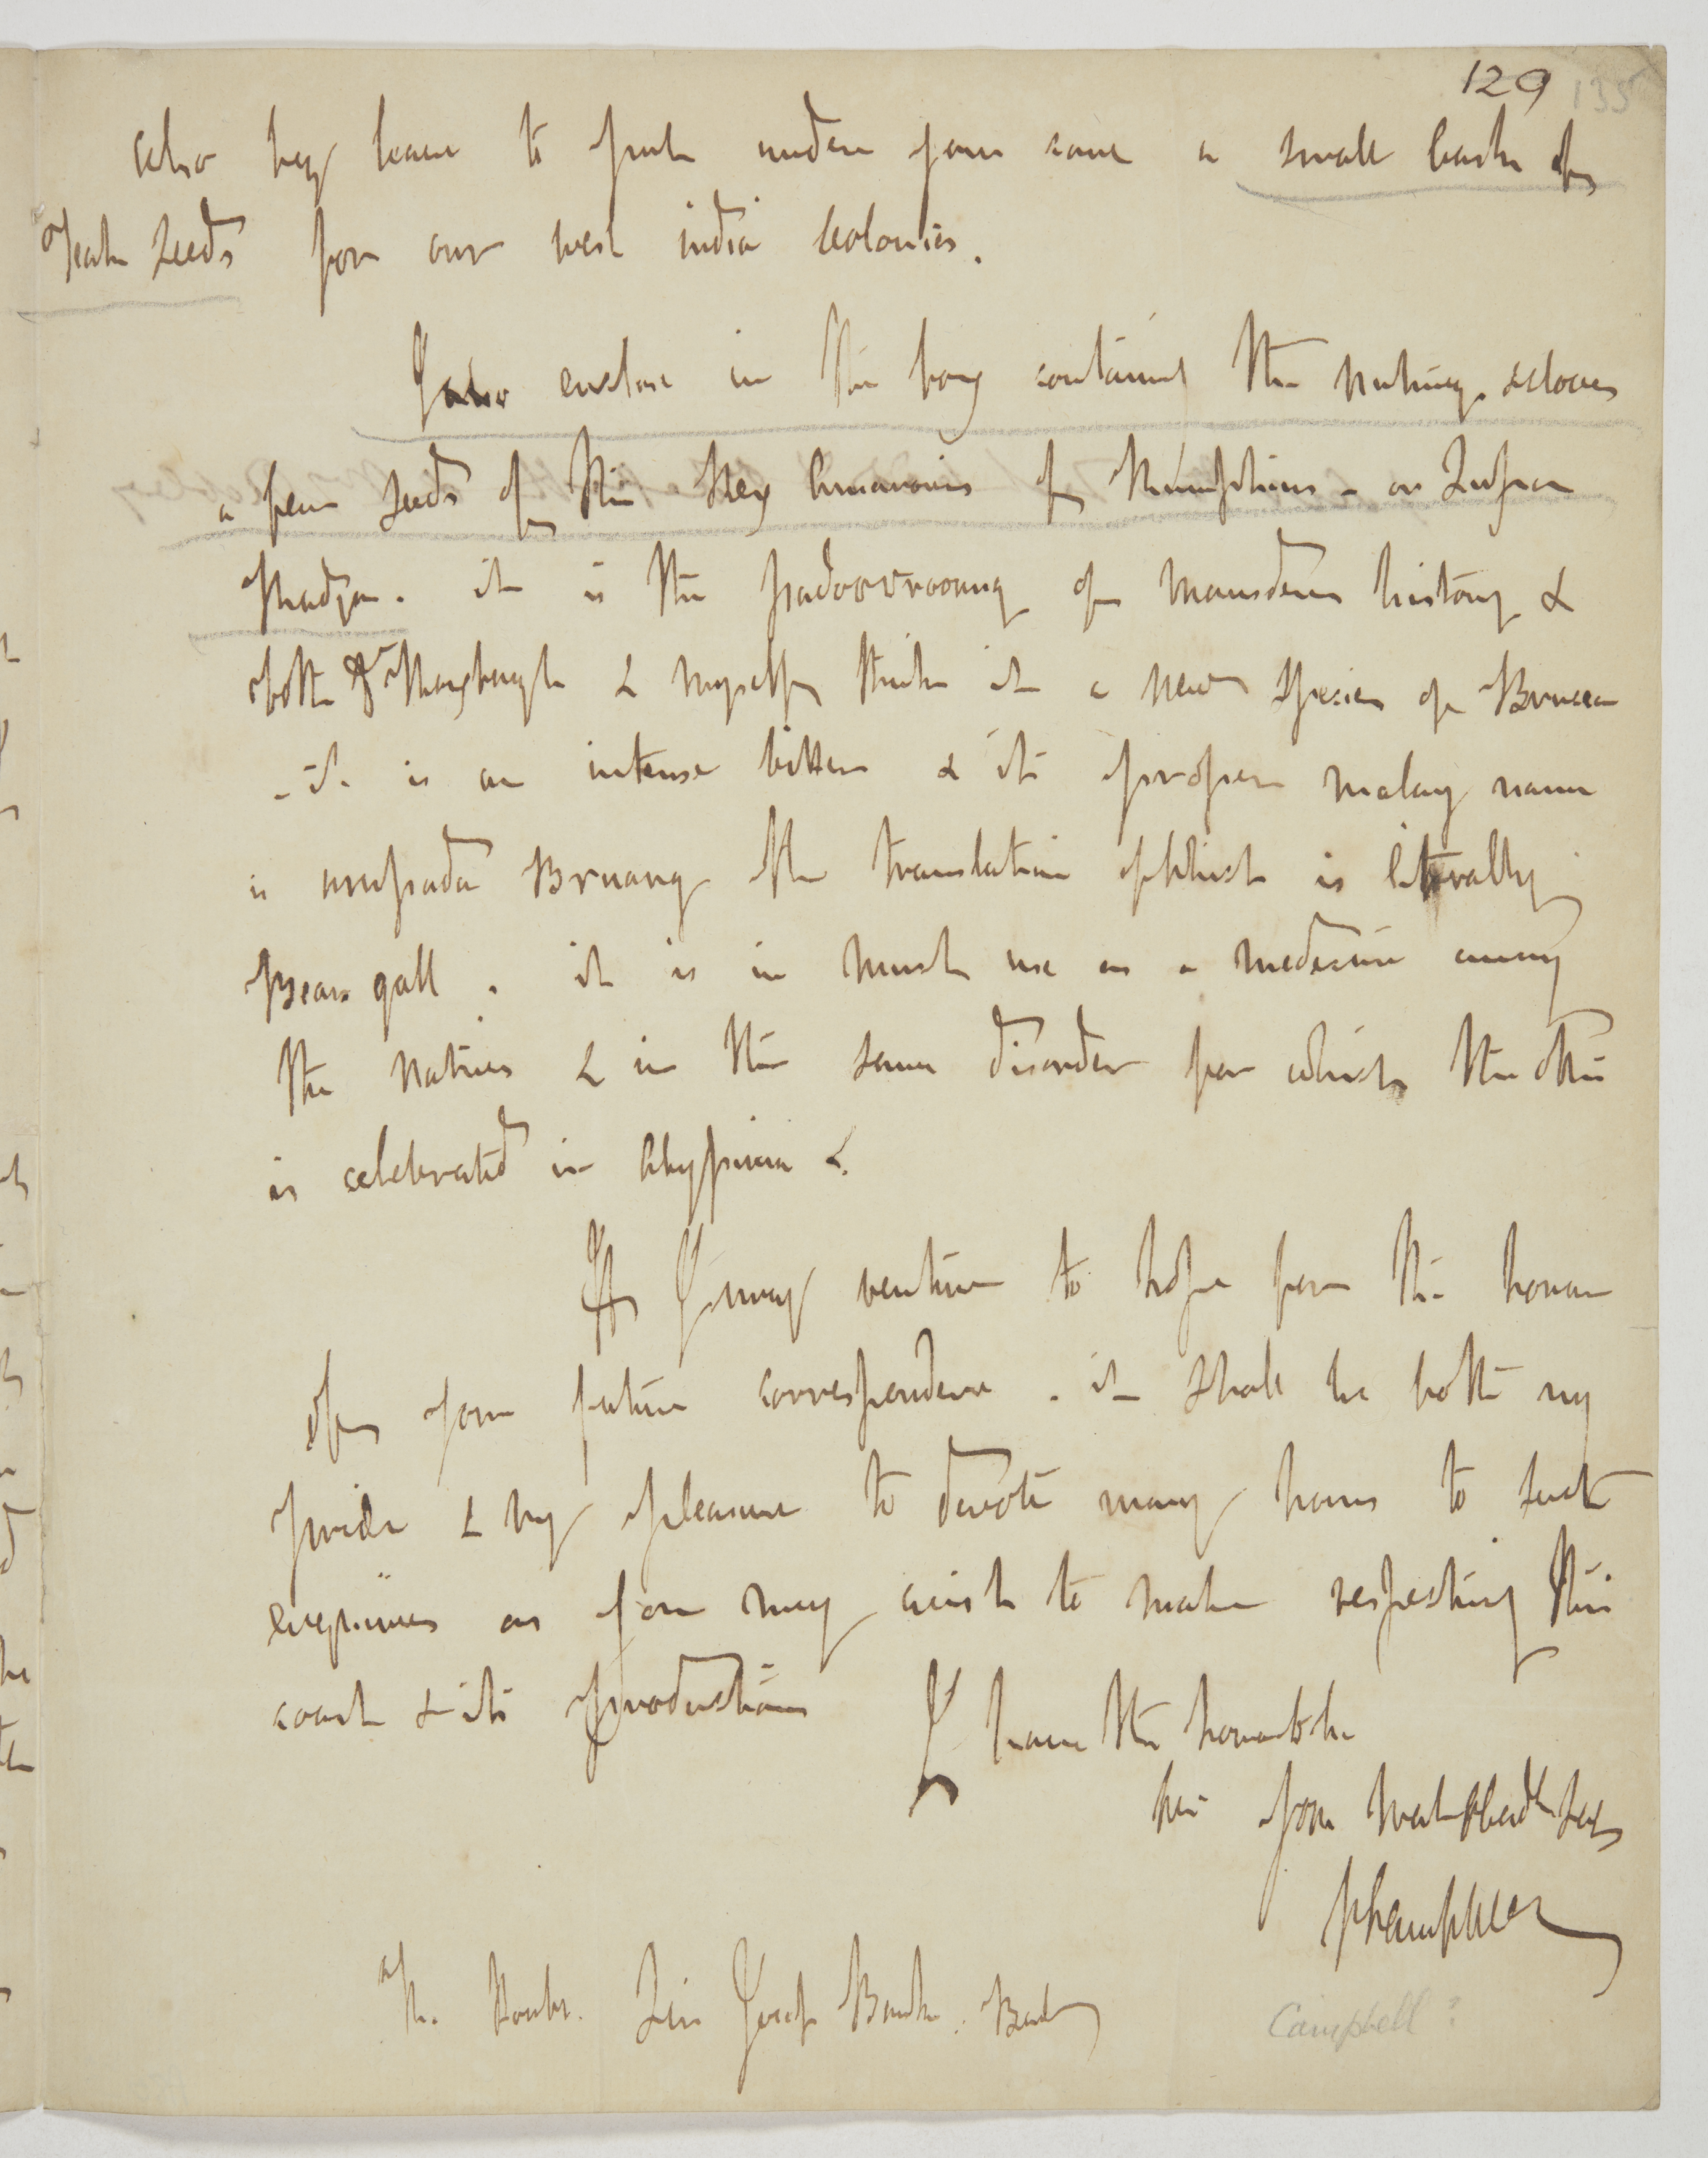 129 135
also beg leave to put under your care a small cask of
Teak seeds for our west india Colonies.
I also enclose in the box containing the nutmegs & cloves
a few seeds of the Rex Amaroris of Rumphius - or Lussa
Radja. it is the padoovrooang of Marsdens history &
both Dr Roxburgh & myself think it a new species of Brucea
- it is an intense bitter & its proper malay name
is umpada Bruang the translation of which is literally
Bears gall. it is in much use as a medecine among
the natives & in the same disorder for which the other
is celebrated in Abyssinia &.
If I may venture to hope for the honor
of your future correspondence. it shall be both my
pride & my pleasure to devote many hours to such
enquiries as you may wish to make respecting this
coast & its productions
I have the honor to be
Sir your most obedt Sert
Campbell
The Honble. Sir Joseph Banks. Bart
Campbell?